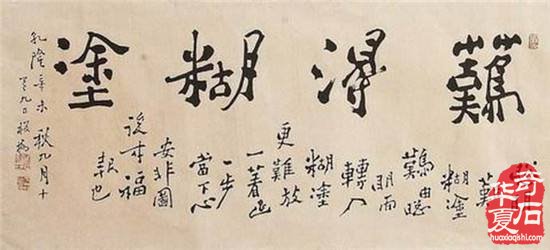 難得糊塗
難
糊塗
難由聪
明而
轉入
糊塗
更難放
一著退
一步
當下心
安非圖
後来福
報也
乾隆辛未秋九月十
有九日板橋
奇石
华夏
huaxiaqishi.com